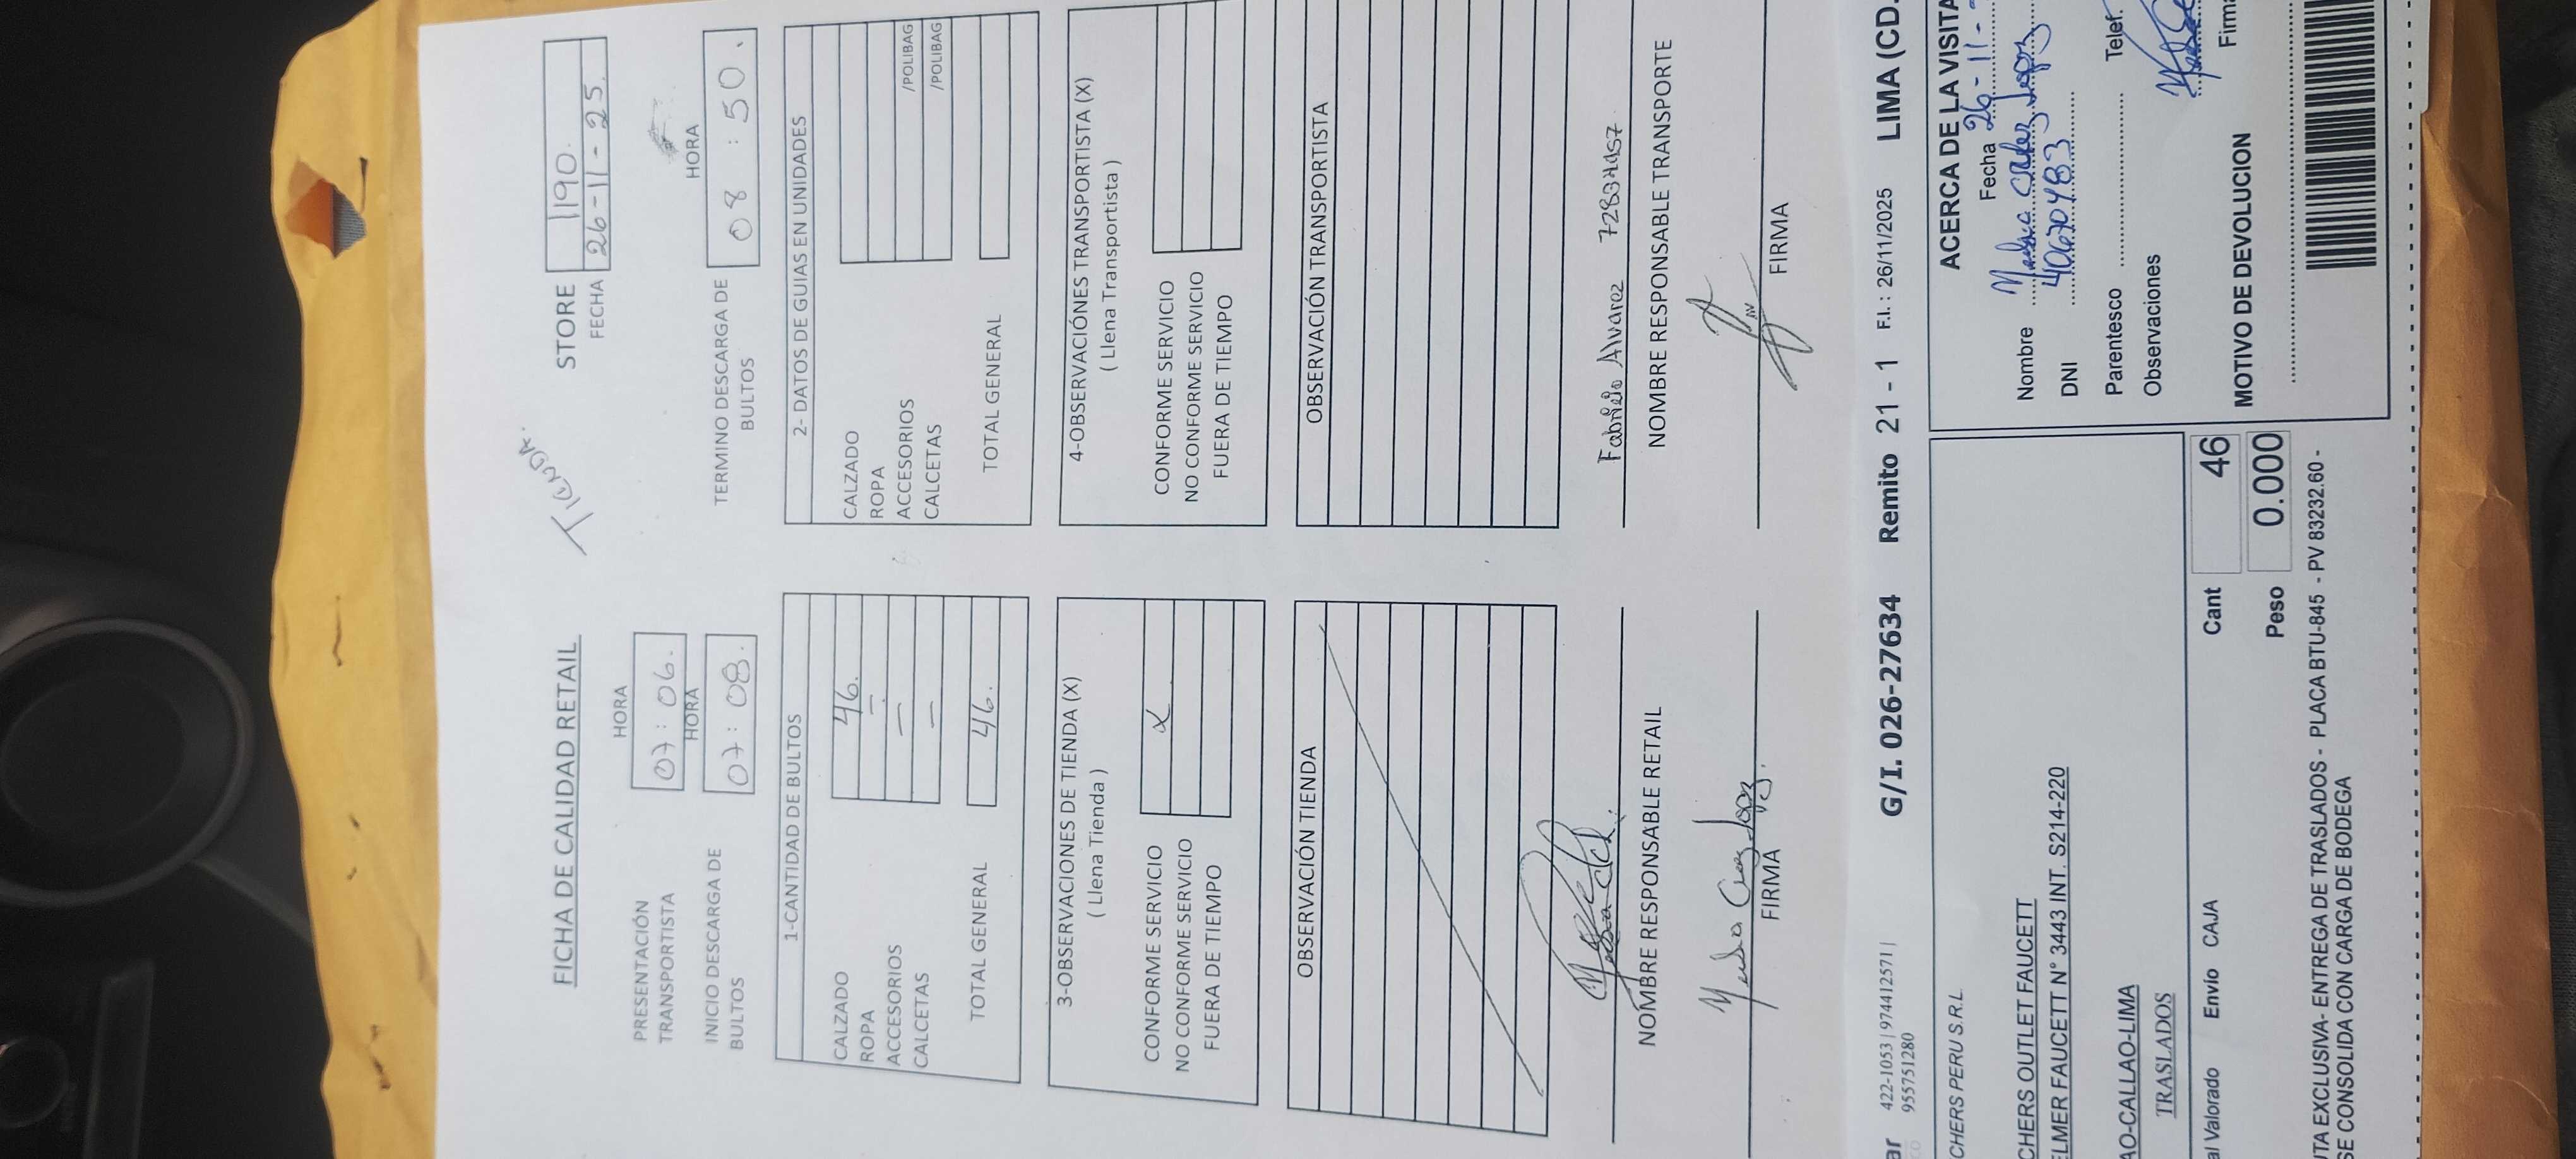 TIENDA.
FICHA DE CALIDAD RETAIL
STORE 1190.
FECHA 26-11-25
HORA
PRESENTACIÓN TRANSPORTISTA 07:06.
HORA
INICIO DESCARGA DE BULTOS 07:08.
HORA
TERMINO DESCARGA DE BULTOS 08:50.
1-CANTIDAD DE BULTOS
CALZADO 46.
ROPA —
ACCESORIOS —
CALCETAS —
TOTAL GENERAL 46.
2- DATOS DE GUIAS EN UNIDADES
CALZADO
ROPA
ACCESORIOS /POLIBAG
CALCETAS /POLIBAG
TOTAL GENERAL
3-OBSERVACIONES DE TIENDA (X)
( Llena Tienda )
CONFORME SERVICIO X
NO CONFORME SERVICIO
FUERA DE TIEMPO
4-OBSERVACIÓNES TRANSPORTISTA (X)
( Llena Transportista )
CONFORME SERVICIO
NO CONFORME SERVICIO
FUERA DE TIEMPO
OBSERVACIÓN TIENDA
OBSERVACIÓN TRANSPORTISTA
NOMBRE RESPONSABLE RETAIL
FIRMA
Alvarez
NOMBRE RESPONSABLE TRANSPORTE
FIRMA
422-1053 | 974412571 |
955751280
G/I. 026-27634 Remito 21 - 1 F.I.: 26/11/2025 LIMA (CD.
CHERS PERU S.R.L
CHERS OUTLET FAUCETT
ELMER FAUCETT N° 3443 INT. S214-220
AO-CALLAO-LIMA
TRASLADOS
al Valorado Envío CAJA Cant 46
Peso 0.000
ACERCA DE LA VISITA
Fecha 26-11-
Nombre
DNI 40670483
Parentesco Telef.
Observaciones
Firma
MOTIVO DE DEVOLUCION
TA EXCLUSIVA- ENTREGA DE TRASLADOS - PLACA BTU-845 - PV 83232.60 -
SE CONSOLIDA CON CARGA DE BODEGA